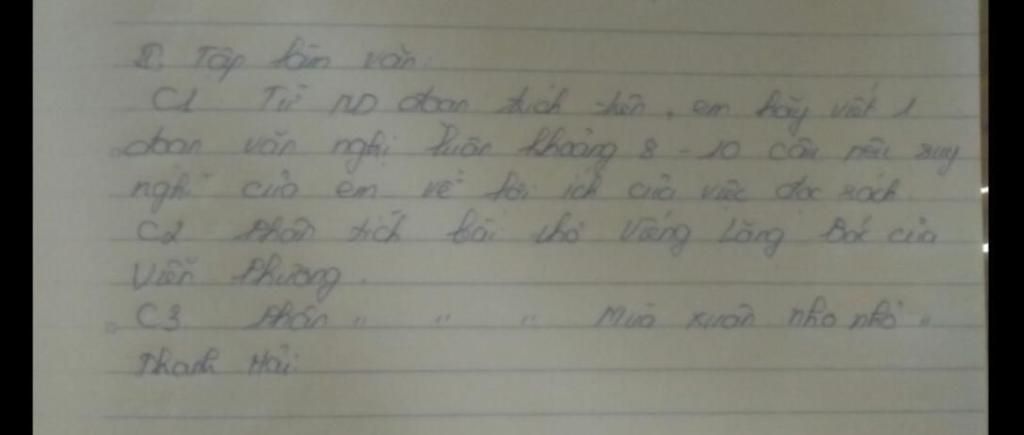 II. Tập làm văn:
C1 Từ ND đoạn trích trên, em hãy viết 1
đoạn văn nghị luận khoảng 8 - 10 câu nêu suy
nghĩ của em về lợi ích của việc đọc sách.
C2 Phân tích bài thơ Viếng Lăng Bác của
Viễn Phương.
C3 Phân " " " Mùa xuân nho nhỏ "
Thanh Hải: